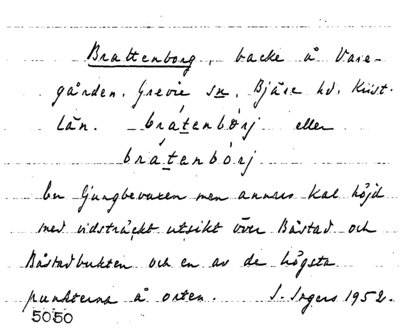 Brattenborg, backe å Vare-
gården. Grevie sn, Bjäre hd. Krist.
län. brátenbòrj eller
brátenbórj
En ljungbevuxen men annars kal höjd
med vidsträckt utsikt över Båstad och
Båstadbukten och en av de högsta
punkterna å orten. S. Ingers 1952.
5050